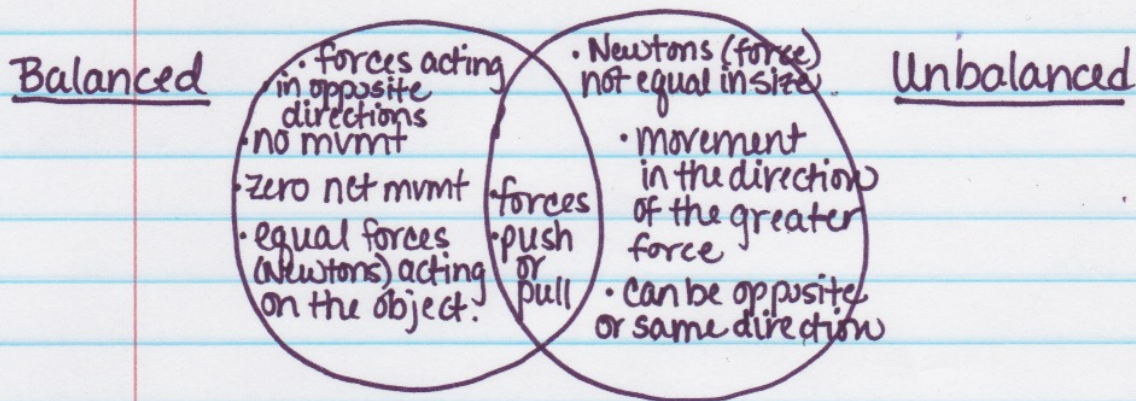 Balanced
• forces acting
in opposite
directions
• no mvmt
• zero net mvmt
• equal forces
(Newtons) acting
on the object.
• forces
• push
or
pull
• Newtons (force)
not equal in size
• movement
in the direction
of the greater
force
• can be opposite
or same direction
Unbalanced